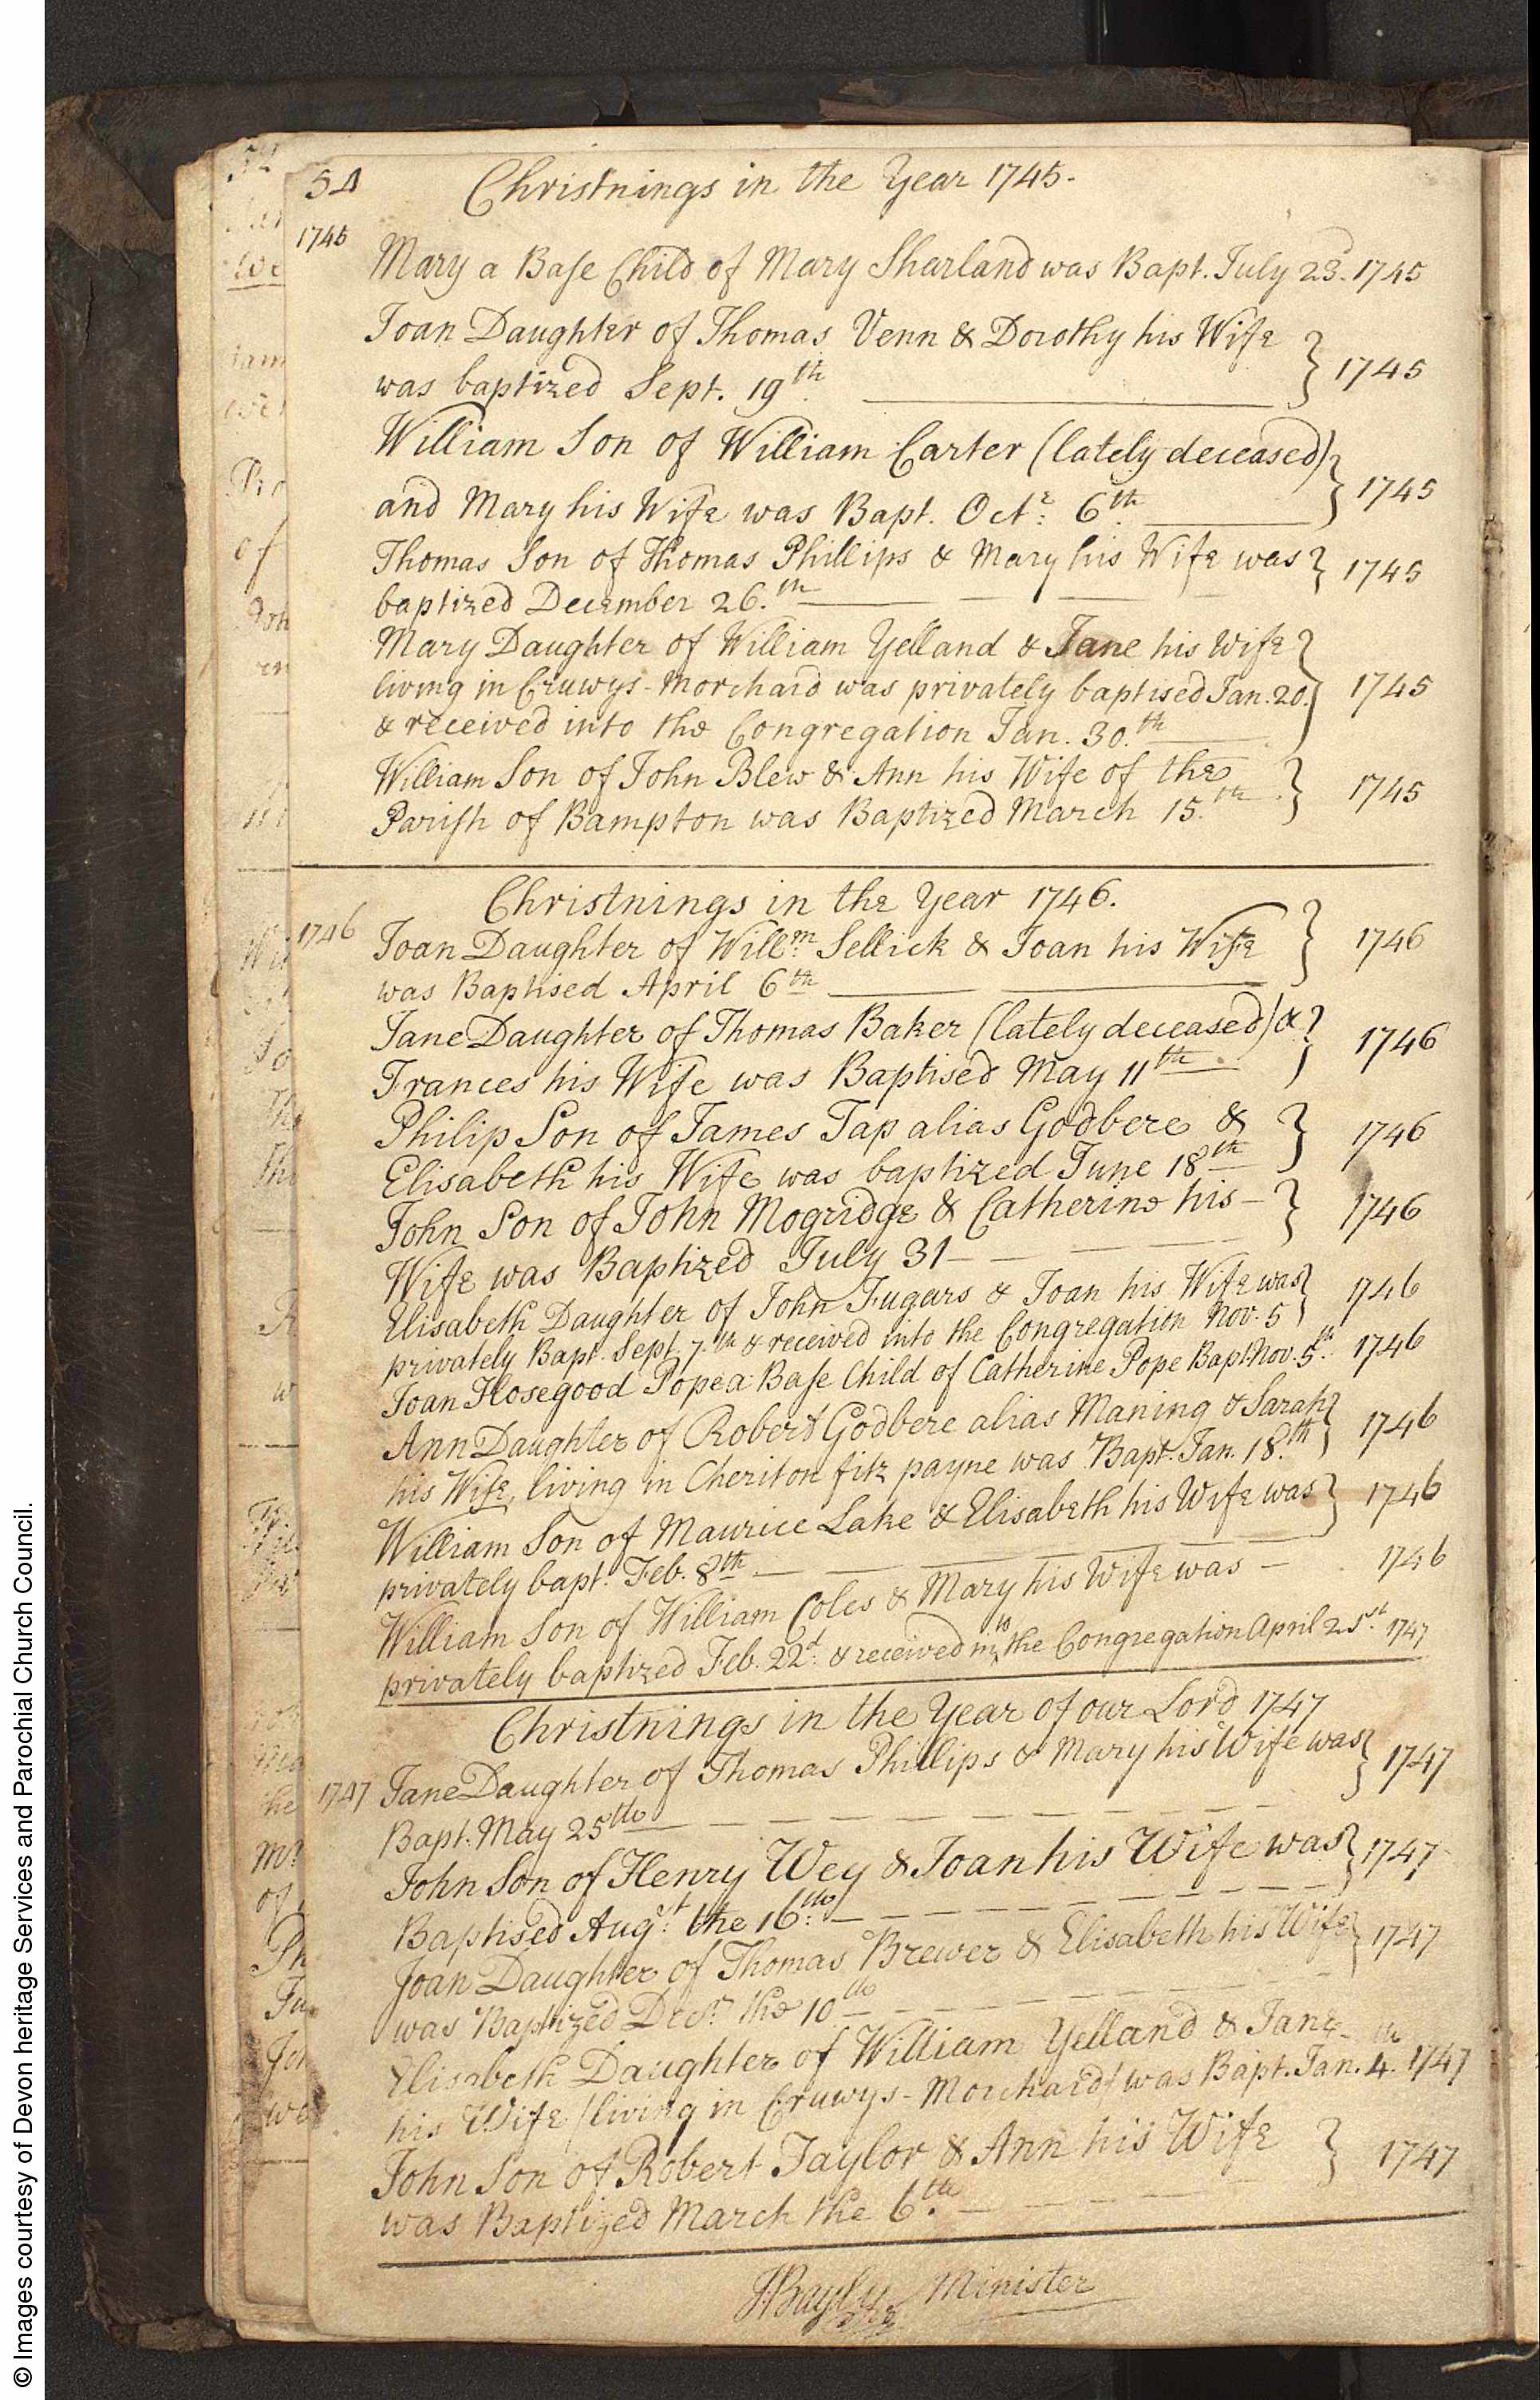 54 Christnings in the Year 1745.
1745
Mary a Base Child of Mary Sharland was Bapt. July 23. 1745
Joan Daughter of Thomas Venn & Dorothy his Wife
was baptized Sept. 19th. } 1745
William Son of William Carter (lately deceased)
and Mary his Wife was Bapt. Octr: 6th. } 1745
Thomas Son of Thomas Phillips & Mary his Wife was
baptized December 26.th } 1745
Mary Daughter of William Yelland & Jane his Wife
living in Cruwys-Morchard was privately baptised Jan. 20. } 1745
& received into the Congregation Jan. 30.th
William Son of John Blew & Ann his Wife of the
Parish of Bampton was Baptized March 15.th } 1745
Christnings in the Year 1746.
1746 Joan Daughter of Willm. Sellick & Joan his Wife } 1746
was Baptised April 6th
Jane Daughter of Thomas Baker (lately deceased) & } 1746
Frances his Wife was Baptised May 11th
Philip Son of James Tap alias Godbere & } 1746
Elisabeth his Wife was baptized June 18th
John Son of John Mogridge & Catherine his - } 1746
Wife was Baptized July 31
Elisabeth Daughter of John Fugars & Joan his Wife was } 1746
privately Bapt. Sept. 7.th & received into the Congregation Nov. 5
Joan Hosegood Pope a Base Child of Catherine Pope Bapt. Nov. 5.th 1746
Ann Daughter of Robert Godbere alias Maning & Sarah } 1746
his Wife, living in Cheriton fitz payne was Bapt. Jan. 18.th
William Son of Maurice Lake & Elisabeth his Wife was } 1746
privately bapt. Feb. 8th
William Son of William Coles & Mary his Wife was - 1746
privately baptized Feb. 22d. & received into the Congregation April 21st. 1747
Christnings in the Year of our Lord 1747
1747 Jane Daughter of Thomas Phillips & Mary his Wife was } 1747
Bapt. May 25th
John Son of Henry Wey & Joan his Wife was } 1747
Baptised Augst. the 16th.
Joan Daughter of Thomas Brewer & Elisabeth his Wife } 1747
was Baptized Decr. the 10th
Elisabeth Daughter of William Yelland & Jane
his Wife (living in Cruwys-Morchard) was Bapt. Jan. 4.th 1747
John Son of Robert Taylor & Ann his Wife } 1747
was Baptized March the 6.th
J Bayly Minister
© Images courtesy of Devon heritage Services and Parochial Church Council.